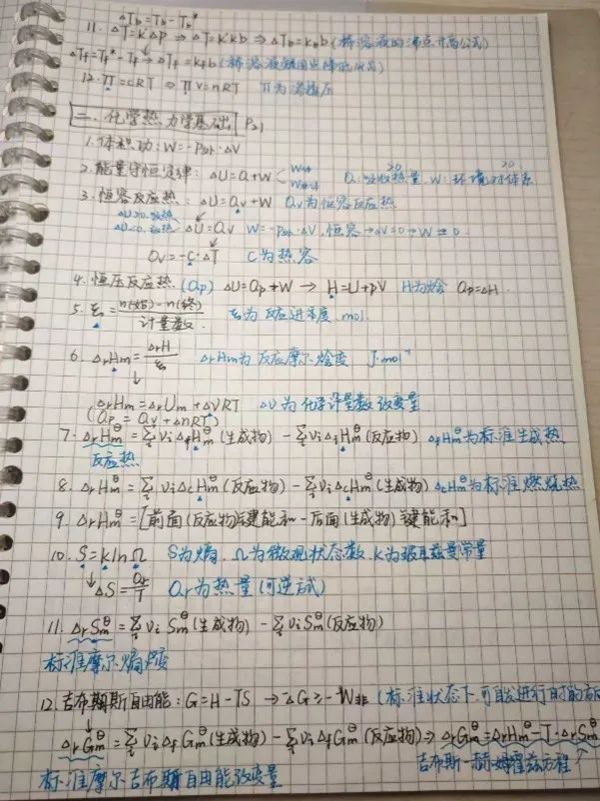 ΔTb=Tb-Tb*
11. ΔT=KΔp → ΔT=K·Kb ⇒ ΔTb=Kbb (稀溶液的沸点升高公式)
ΔTf=Tf*-Tf → ΔTf=Kfb (稀溶液凝固点降低公式)
12. Π=cRT ⇒ ΠV=nRT Π为渗透压
二. 化学热力学基础 P21
1. 体积功: W=-P外·ΔV
2. 能量守恒定律: ΔU=Q+W Q: 吸收热量 W: 环境对体系
3. 恒容反应热: ΔU=Qv+W Qv为恒容反应热
ΔU>0.吸热
ΔU<0.放热 ΔU=Qv W=-P外·ΔV, 恒容→ΔV=0→W=0
Qv=-C·ΔT C为热容
4. 恒压反应热 (Qp) ΔU=Qp+W → H=U+pV H为焓 Qp=ΔH.
5. ξ=n(始)-n(终)/计量数. ξ为反应进度 mol.
6. ΔrHm=ΔrH/ξ ΔrHm为反应摩尔焓变 J·mol⁻¹
↓
ΔrHm=ΔrUm+ΔνRT Δν为化学计量数改变量
(Qp=Qv+ΔnRT)
7. ΔrHm^θ=∑i νiΔfHm^θ(生成物)-∑i νiΔfHm^θ(反应物) ΔfHm^θ为标准生成热
反应热
8. ΔrHm^θ=∑i νiΔcHm^θ(反应物)-∑i νiΔcHm^θ(生成物) ΔcHm^θ为标准燃烧热
9. ΔrHm^θ=[前面(反应物)键能和-后面(生成物)键能和]
10. S=klnΩ S为熵. Ω为微观状态数. k为玻耳兹曼常量
↓ ΔS=Qr/T Qr为热量(可逆试)
11. ΔrSm^θ=∑i νiSm^θ(生成物)-∑i νiSm^θ(反应物)
标准摩尔熵变
12. 吉布斯自由能: G=H-TS →-ΔG≥-W非 (标准状态下可自发进行时的
ΔrGm^θ=∑i νiΔfGm^θ(生成物)-∑i νiΔfGm^θ(反应物)⇒ΔrGm^θ=ΔrHm^θ-T·ΔrSm^θ
吉布斯-赫姆霍兹方程
标准摩尔吉布斯自由能改变量